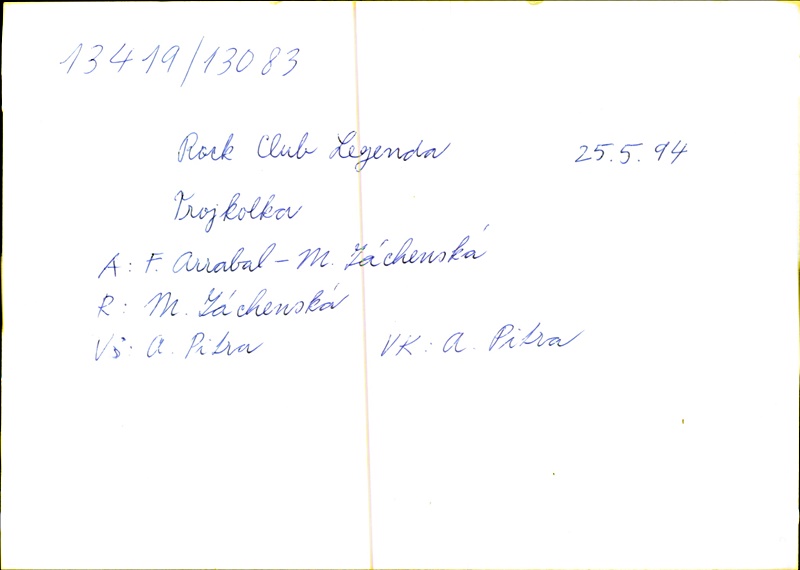 13419/13083
Rock Club Legenda 25.5.94
Trojkolka
A: F. Arrabal - M. Záchenská
R: M. Záchenská
VŠ: A. Pitra VK: A. Pitra